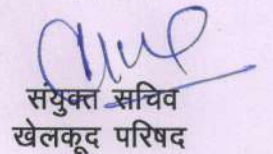 संयुक्त सचिव
खेलकूद परिषद